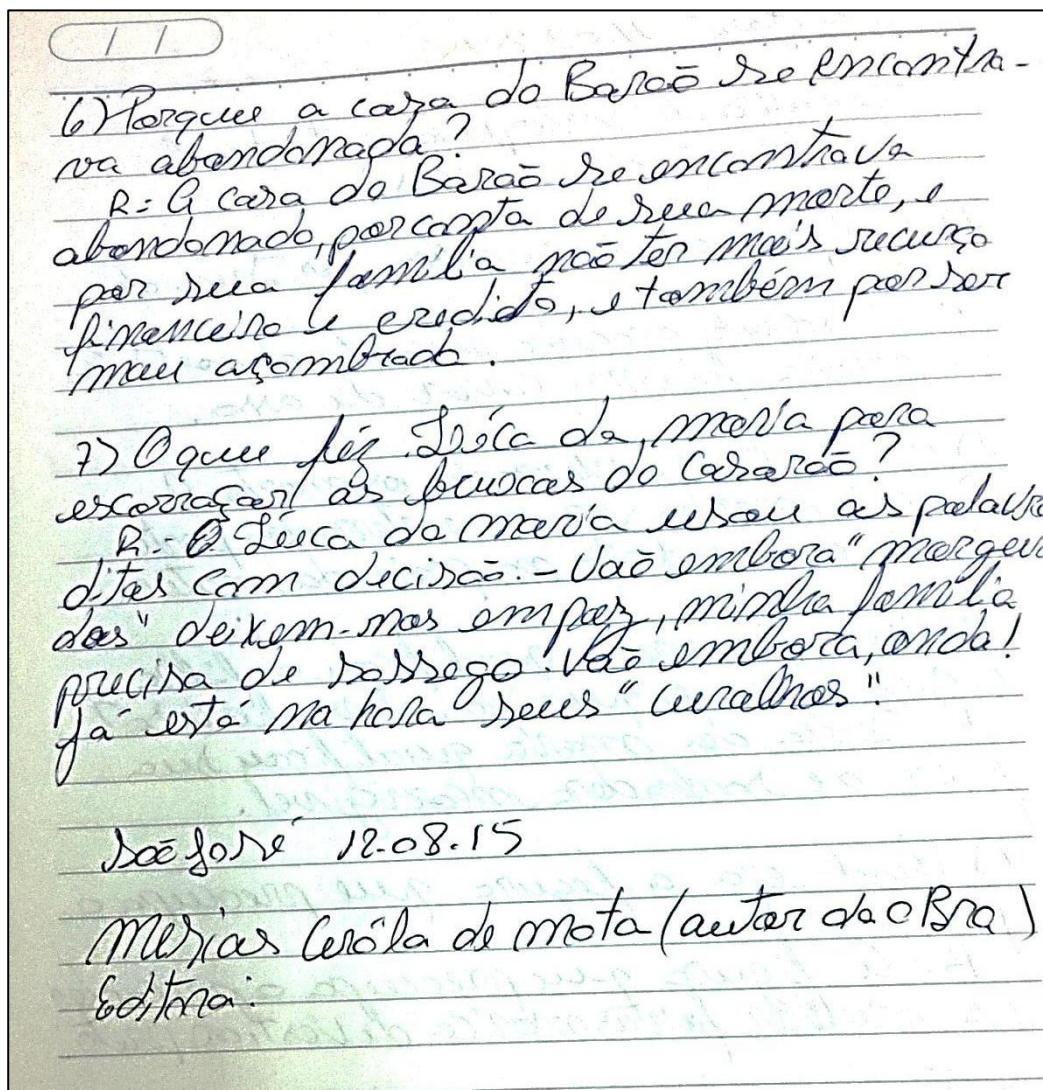 6) Porque a casa do Barão se encontra-
va abandonada?
R: A casa do Barão se encontrava
abandonado, por conta de sua morte, e
por sua família não ter mais recurço
financeiro e credito, e também por ser
mau açombrado.
7) O que féz da maria para
escorraçar as do casarão?
R: - O da maria usou as palavra
ditas com decisão. - Vaõ embora "
das" deixem-nos em paz, minha família
precisa de sossego. Vaõ embora, anda!
Já está na hora seus "
São José 12.08.15
Mesias de mota (autor da oBra)
Editora: